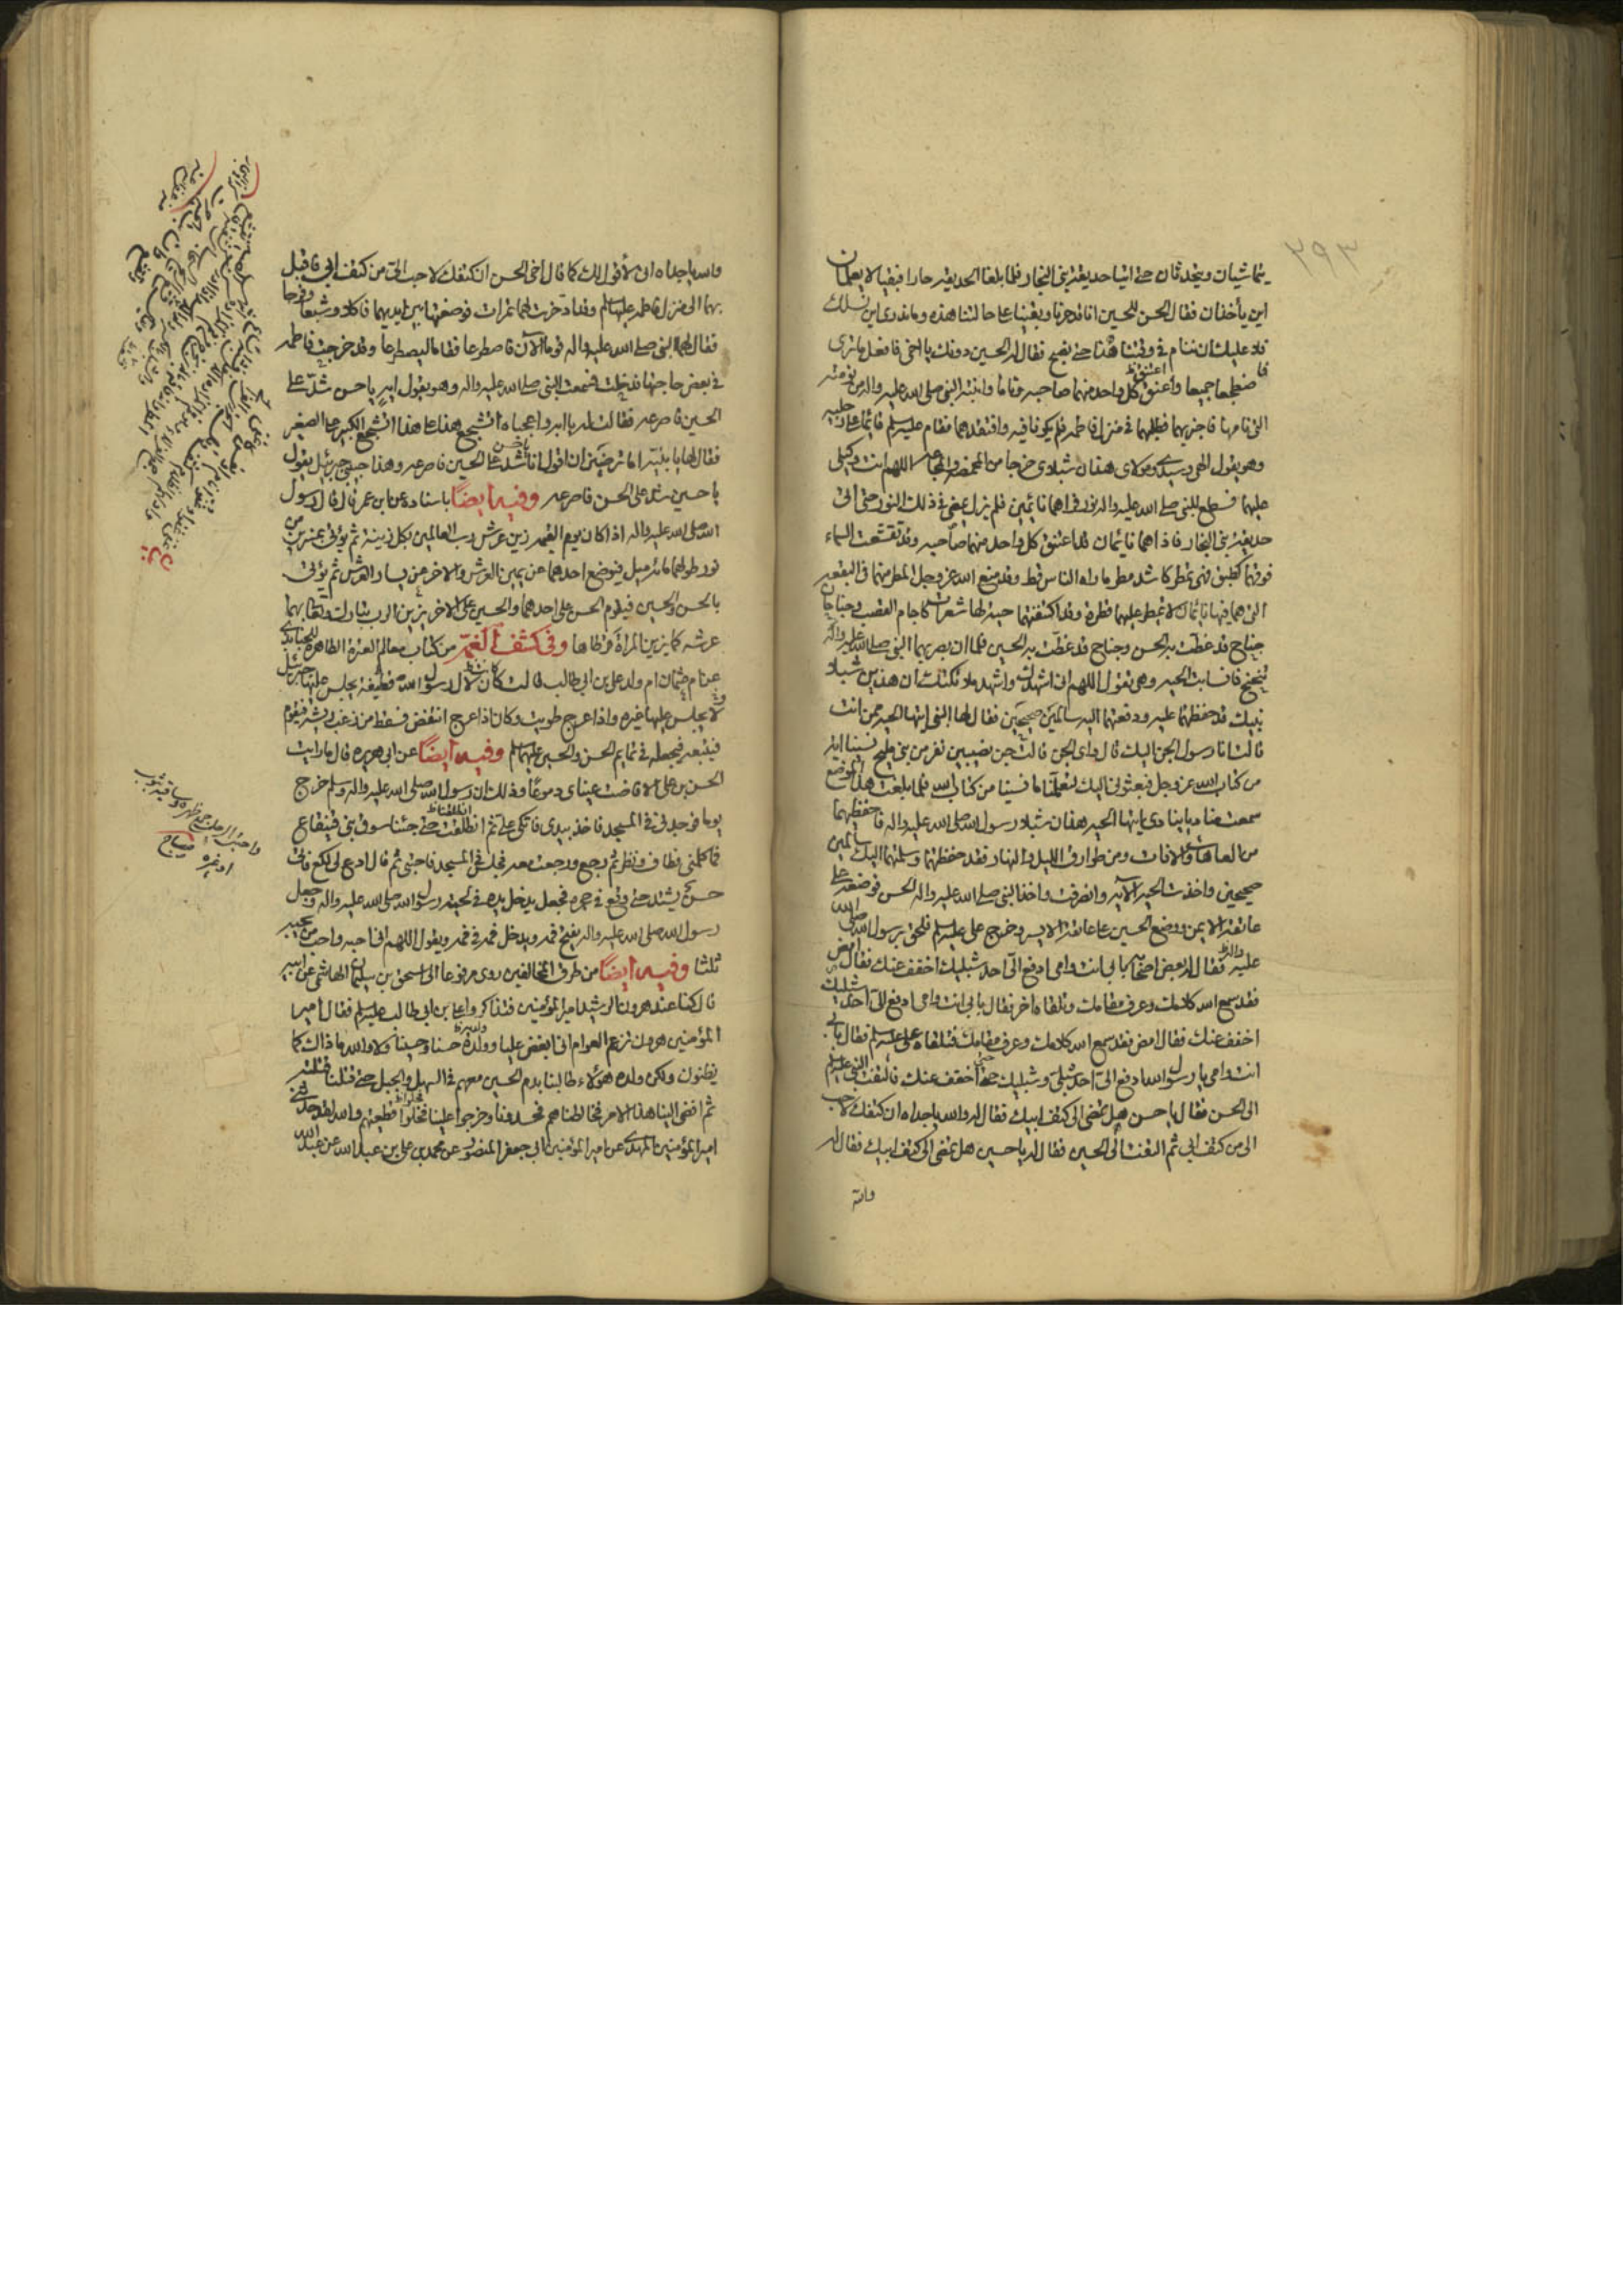 ٢٩٣
يتماشيان ويتحدثان حتى اتيا حديقة بني النجار فلما بلغا الحديقة حارا فبقيا لا يعلمان
اين يأخذان فقال الحسن للحسين انا قد حرنا وبقينا على حالتنا هذه وما ندرى اين نسلك
فلا عليك ان ننام في وقتنا هذا حتى نصبح فقال له الحسين دونك يا اخي فافعل ما ترى
فاضطجعا جميعا واعتنق كل واحد منهما صاحبه وناما وانتبه النبي صلى الله عليه واله من نومته
التي نامها فاجز بهما فطلبهما في منزل فاطمه فلم يكونا فيه وافتقدهما فقام عليه السلم قائما على رجليه
وهو يقول الهي وسيدي ومولاى هذان شبلاى خرجا من المخمصة والمجاعة اللهم انت وكيلى
عليهما فسطع للنبي صلى الله عليه واله نور فراهما نائمين فلم يزل يمضى في ذلك النور حتى اتى
حديقة بني النجار فاذا هما نايمان قد اعتنق كل واحد منهما صاحبه وقد تقشعت السماء
فوقهما كطبق فهى تمطر كاشد مطر ما راه الناس قط وقد منع الله عز وجل المطر منهما في البقعة
التي هما فيها نائمان لا يمطر عليهما قطرة وقد اكتنفتهما حية لها شعرات كاجام القصب وجناحان
جناح قد غطت به الحسن وجناح قد غطت به الحسين فلما ان بصر بهما النبي صلى الله عليه واله
تنحنح فانسابت الحية وهي تقول اللهم اني اشهدك واشهد ملائكتك ان هذين شبلا
نبيك قد حفظتهما عليه ودفعتهما اليه سالمين صحيحين فقال لها النبي ايتها الحية ممن انت
قالت انا رسول الجن اليك قال واى الجن قالت جن نصيبين نفر من بني مليح نسينا اية
من كتاب الله عز وجل فبعثونى اليك لتعلمنا ما نسينا من كتاب الله فلما بلغت هذا الموضع
سمعت مناديا ينادى ايتها الحية هذان شبلا رسول الله صلى الله عليه واله فاحفظيهما
من العاهات والافات ومن طوارق الليل والنهار فقد حفظتهما وسلمتهما اليك سالمين
صحيحين واخذت الحية الاية وانصرفت واخذ النبي صلى الله عليه واله الحسن فوضعه على
عاتقه الايمن ووضع الحسين على عاتقه الايسر وخرج على عليه السلم فلحق برسول الله صلى الله
عليه واله فقال له بعض اصحابه بابى انت وامى ادفع الى احد شبليك اخفف عنك فقال امض
فقد سمع الله كلامك وعرف مقامك وتلقاه اخر فقال بابى انت وامى ادفع الى احد شبليك
اخفف عنك فقال امض فقد سمع الله كلامك وعرف مقامك فتلقاه على عليه السلم فقال بابى
انت وامى يا رسول الله ادفع الى احد شبلى وشبليك حتى اخفف عنك فالتفت النبي عليه السلم
الى الحسن فقال يا حسن هل تمضى الى كتف ابيك فقال له والله يا جداه ان كتفك لاحب
الى من كتف ابى ثم التفت الى الحسين فقال له يا حسين هل تمضى الى كتف ابيك فقال له
والله
والله يا جداه انى لأقول لك كما قال اخى الحسن ان كتفك لاحب الى من كتف ابى فاقبل
بهما الى منزل فاطمه عليها السلم وقد ادخرت لهما تمرات فوضعتها بين ايديهما فاكلا وشبعا وفرحا
فقال لهما النبي صلى الله عليه واله قوما الان فاصطرعا فقاما ليصطرعا وقد خرجت فاطمه
في بعض حاجتها فدخلت فسمعت النبي صلى الله عليه واله وهو يقول ايه يا حسن شد على
الحسين فاصرعه فقالت له يا ابه واعجباه اتشجع هذا على هذا اتشجع الكبير على الصغير
فقال لها يا بنية اما ترضين ان اقول انا يا حسن شد على الحسين فاصرعه وهذا حبيبى جبرئيل يقول
يا حسين شد على الحسن فاصرعه وفيه ايضا باسناده عن ابن عمر قال قال رسول
الله صلى الله عليه واله اذا كان يوم القيمه زين عرش رب العالمين بكل زينة ثم يؤتى بمنبرين من
نور طولهما مائه ميل فيوضع احدهما عن يمين العرش والاخر عن يسار العرش ثم يؤتى
بالحسن والحسين فيقوم الحسن على احدهما والحسين على الاخر يزين الرب تبارك وتعالى بهما
عرشه كما يزين المراة قرطاها وفى كشف الغمة من كتاب معالم العترة الطاهرة للجنابذى
عن ام عثمان ام ولد على بن ابى طالب قالت كانت لال رسول الله قطيفة يجلس عليها جبرئيل
لا يجلس عليها غيره واذا عرج طويت وكان اذا عرج انتفض فسقط من زغب ريشه فيقوم
فيتبعه فيجعله في تمايم الحسن والحسين عليهما السلم وفيه ايضا عن ابى هريره قال ما رايت
الحسن بن على الا فاضت عيناى دموعا وذلك ان رسول الله صلى الله عليه واله وسلم خرج
يوما فوجدنى في المسجد فاخذ بيدى فاتكى على ثم انطلقت حتى جئنا سوق بنى قينقاع
فما كلمنى فطاف ونظر ثم رجع ورجعت معه فجلس في المسجد فاحتبى ثم قال ادع لى لكع فاتى
حسن يشتد حتى وقع في حجره فجعل يدخل يده في لحية رسول الله صلى الله عليه واله وجعل
رسول الله صلى الله عليه واله يفتح فمه ويدخل فمه في فمه ويقول اللهم انى احبه واحب من يحبه
ثلثا وفيه ايضا من طرق المخالفين روى مرفوعا الى اسحق بن سليمان الهاشمى عن ابيه
قال كنا عند هرون الرشيد امير المؤمنين فتذاكروا على بن ابى طالب عليه السلم فقال امير
المؤمنين هرون تزعم العوام انى ابغض عليا وولده حسنا وحسينا ولا والله ما ذلك كما
يظنون ولكن ولده هؤلاء طالبنا بدم الحسين معهم في السهل والجبل حتى قتلنا قتلته
ثم افضى الينا هذا الامر فخالطناهم فحسدونا وخرجوا علينا فحلوا قطيعتهم والله لقد حدثنى
امير المؤمنين المهدى عن امير المؤمنين ابى جعفر المنصور عن محمد بن على بن عبد الله عن عبد الله
واحتبى الرجل جمع ظهره وساقيه بثوب
او غيره صحاح